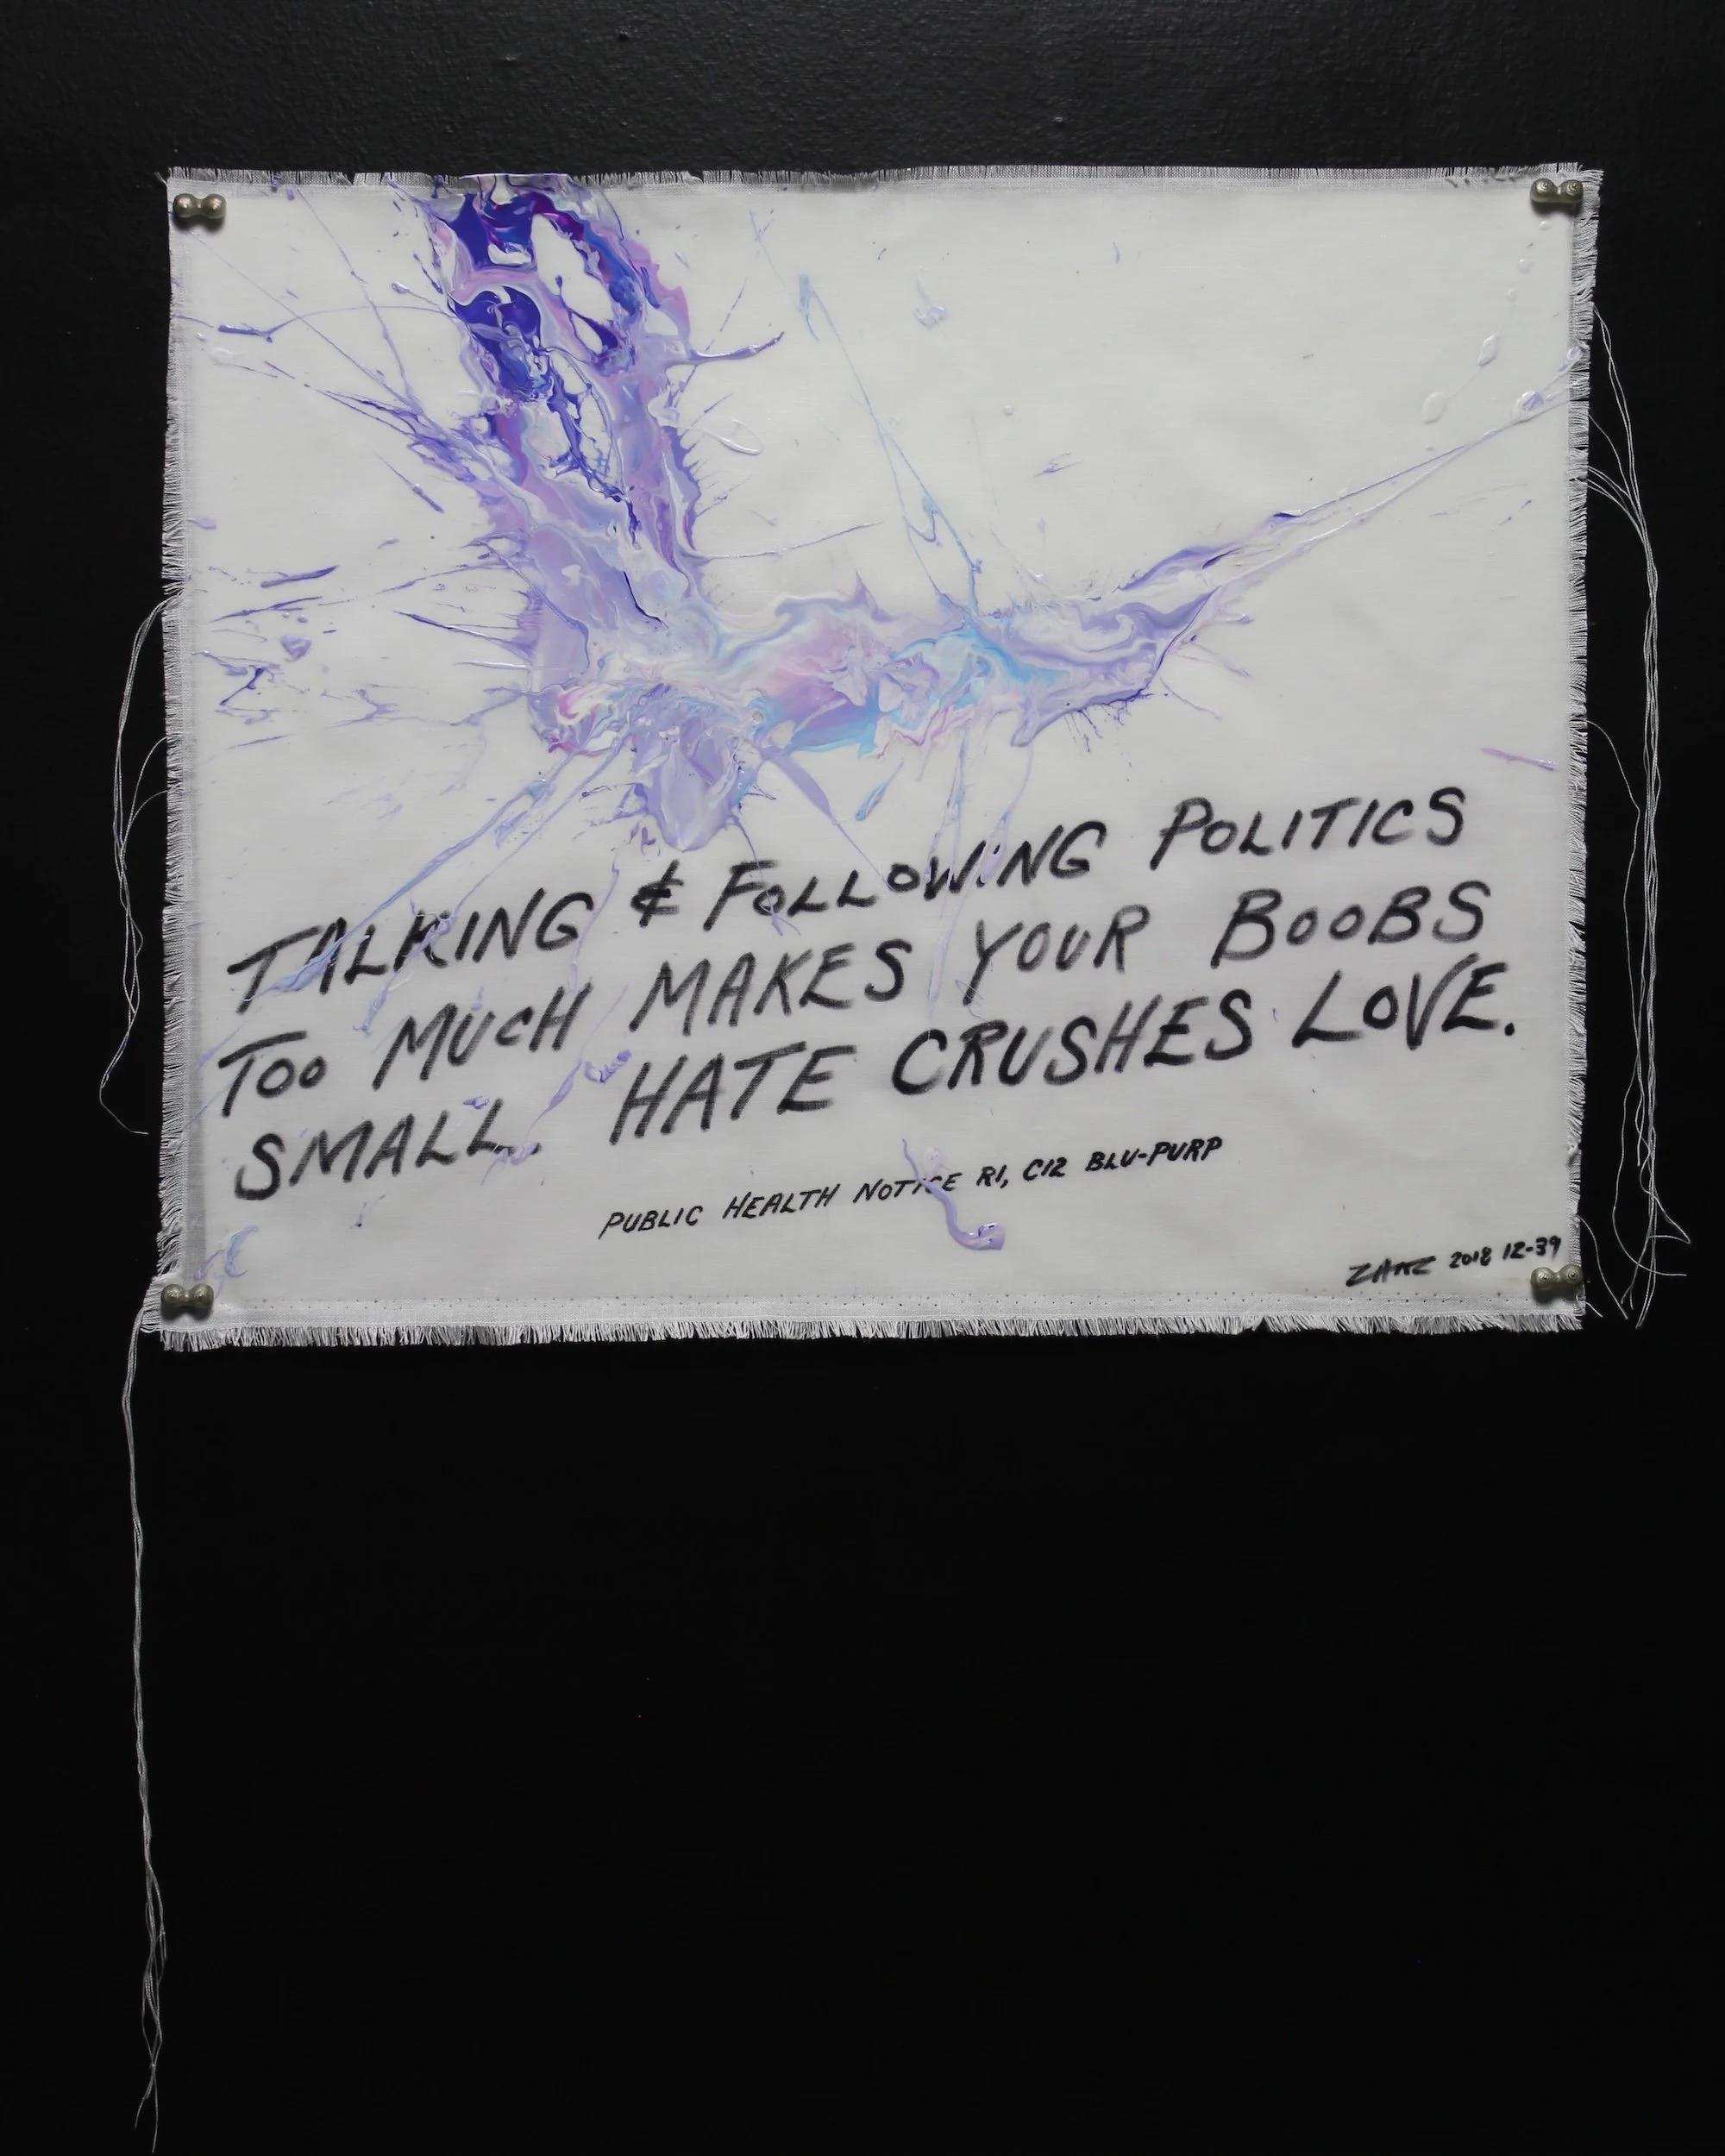 TALKING & FOLLOWING POLITICS
TOO MUCH MAKES YOUR BOOBS
SMALL. HATE CRUSHES LOVE.
PUBLIC HEALTH NOTICE R1, C12 BLU-PURP
2018 12-39